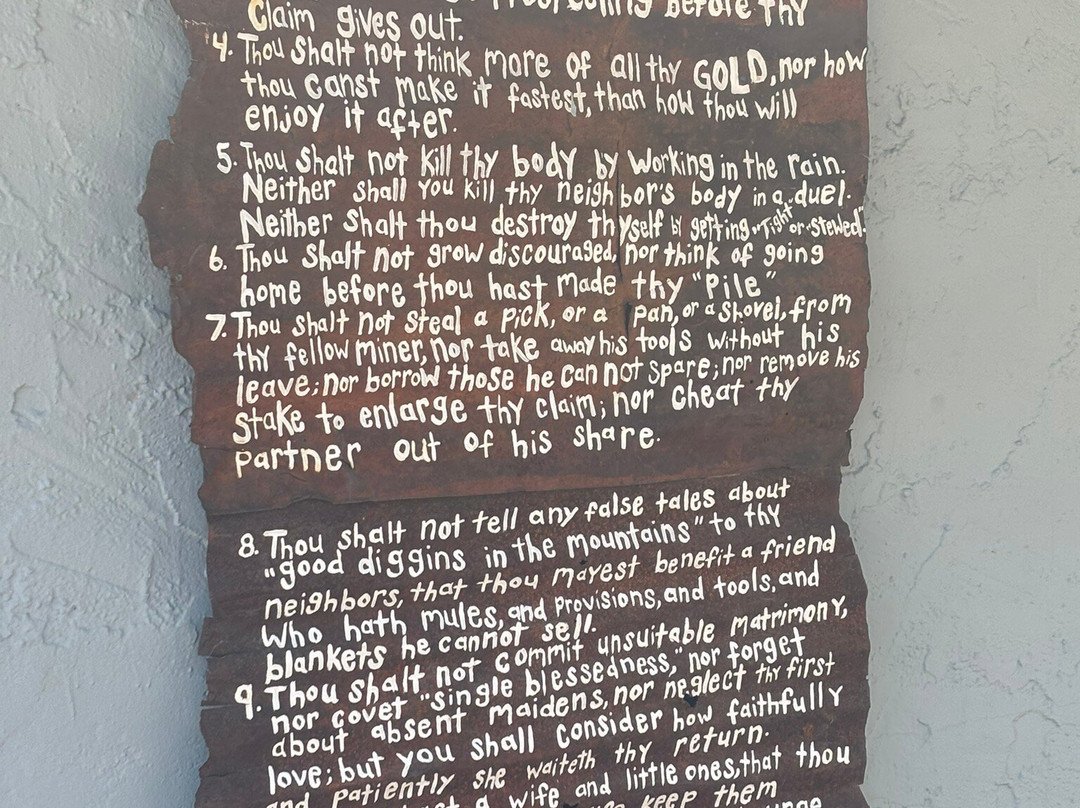 before thy
Claim gives out.
4. Thou Shalt not think more of all thy GOLD, nor how
thou canst make it fastest, than how thou will
enjoy it after.
5. Thou Shalt not kill thy body by working in the rain.
Neither shall you kill thy neighbor's body in a duel.
Neither Shalt thou destroy thyself by getting "Tight" or "stewed."
6. Thou Shalt not grow discouraged, nor think of going
home before thou hast made thy "Pile"
7. Thou shalt not steal a pick, or a pan, or a shovel, from
thy fellow miner, nor take away his tools without his
leave; nor borrow those he can not spare; nor remove his
stake to enlarge thy claim; nor cheat thy
partner out of his share.
8. Thou shalt not tell any false tales about
"good diggins in the mountains" to thy
neighbors, that thou mayest benefit a friend
who hath mules, and provisions, and tools, and
blankets he cannot sell.
9. Thou shalt not commit unsuitable matrimony,
nor covet "single blessedness," nor forget
about absent maidens, nor neglect thy first
love; but you shall consider how faithfully
and patiently she waiteth thy return.
a wife and little ones, that thou
keep them